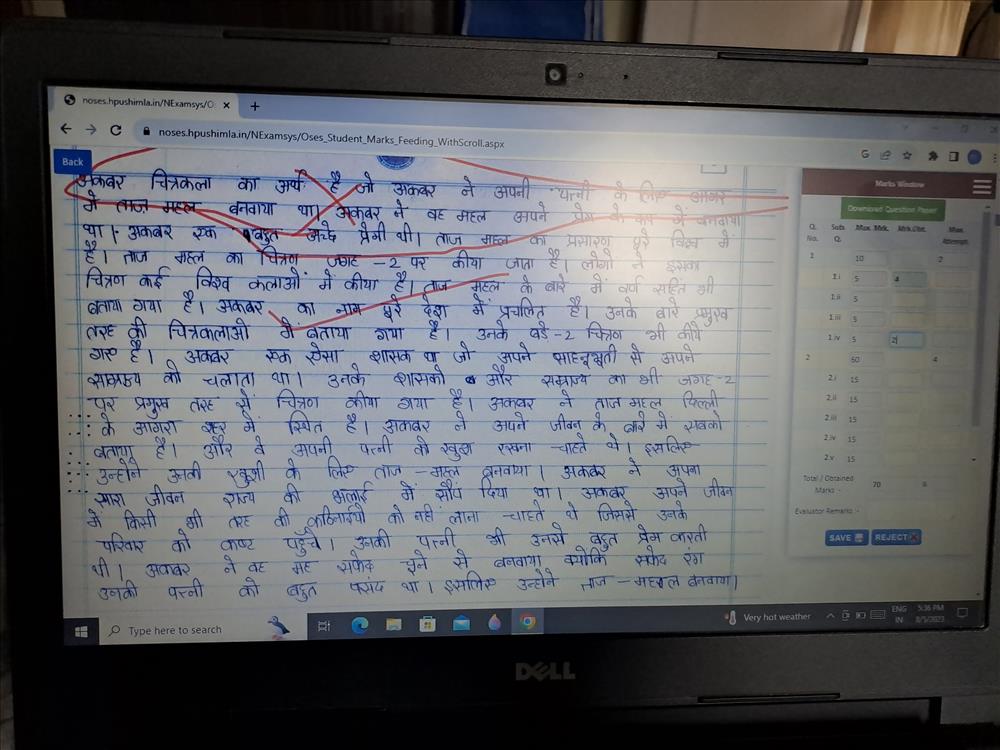 noses.hpushimla.in/NExamsys/O
noses.hpushimla.in/NExamsys/Oses_Student_Marks_Feeding_WithScroll.aspx
Back
अकबर चित्रकला का अर्थ है जो अकबर ने अपनी पत्नी के लिए आगरा
में ताज महल बनवाया था। अकबर ने वह महल अपने प्रेम के रूप में बनवाया
था। अकबर एक बहुत अच्छे प्रेमी थी। ताज महल का प्रसारण पूरे विश्व में
है। ताज महल का चित्रण जगह-2 पर कीया जाता है। लोगों ने इसका
चित्रण कई विश्व कलाओं में कीया है। ताज महल के बारे में वर्ण सहित भी
बताया गया है। अकबर का नाम पूरे देश में प्रचलित है। उनके बारे प्रमुख
तरह की चित्रकलाओ में बताया गया है। उनके बडे-2 चित्रण भी कीये
गए है। अकबर एक ऐसा शासक था जो अपने से अपने
साम्राज्य को चलाता था। उनके शासको और सम्राज्य का भी जगह-2
पर प्रमुख तरह से चित्रण कीया गया है। अकबर ने ताज महल दिल्ली
के आगरा शहर में स्थित है। अकबर ने अपने जीवन के बारे में सबको
बताया है। और वे अपनी पत्नी को खुश रखना चाहते थे। इसलिए
उन्होने उनकी खुशी के लिए ताज-महल बनवाया। अकबर ने अपना
सारा जीवन राज्य की भलाई में सौंप दिया था। अकबर अपने जीवन
मे किसी भी तरह की कठिनाईयो को नही लाना चाहते थे जिससे उनके
परिवार को कष्ट पहुँचे। उनकी पत्नी भी उनसे बहुत प्रेम करती
थी। अकबर ने वह मह सफेद चूने से बनवाया क्योकि सफेद रंग
उनकी पत्नी को बहुत पसंद था। इसलिए उन्होने ताज-महल बनवाया।
Marks Window
Download Question Paper
Q. No. Sub Q. Max. Mrk. Mrk.Obt. Max. Attempt
1 10 2
1.i 5 4
1.ii 5
1.iii 5
1.iv 5 2
2 60 4
2.i 15
2.ii 15
2.iii 15
2.iv 15
2.v 15
Total / Obtained Marks :- 70 6
Evaluator Remarks :-
SAVE REJECT
Type here to search
Very hot weather
ENG IN
5:36 PM
8/5/2023
DELL